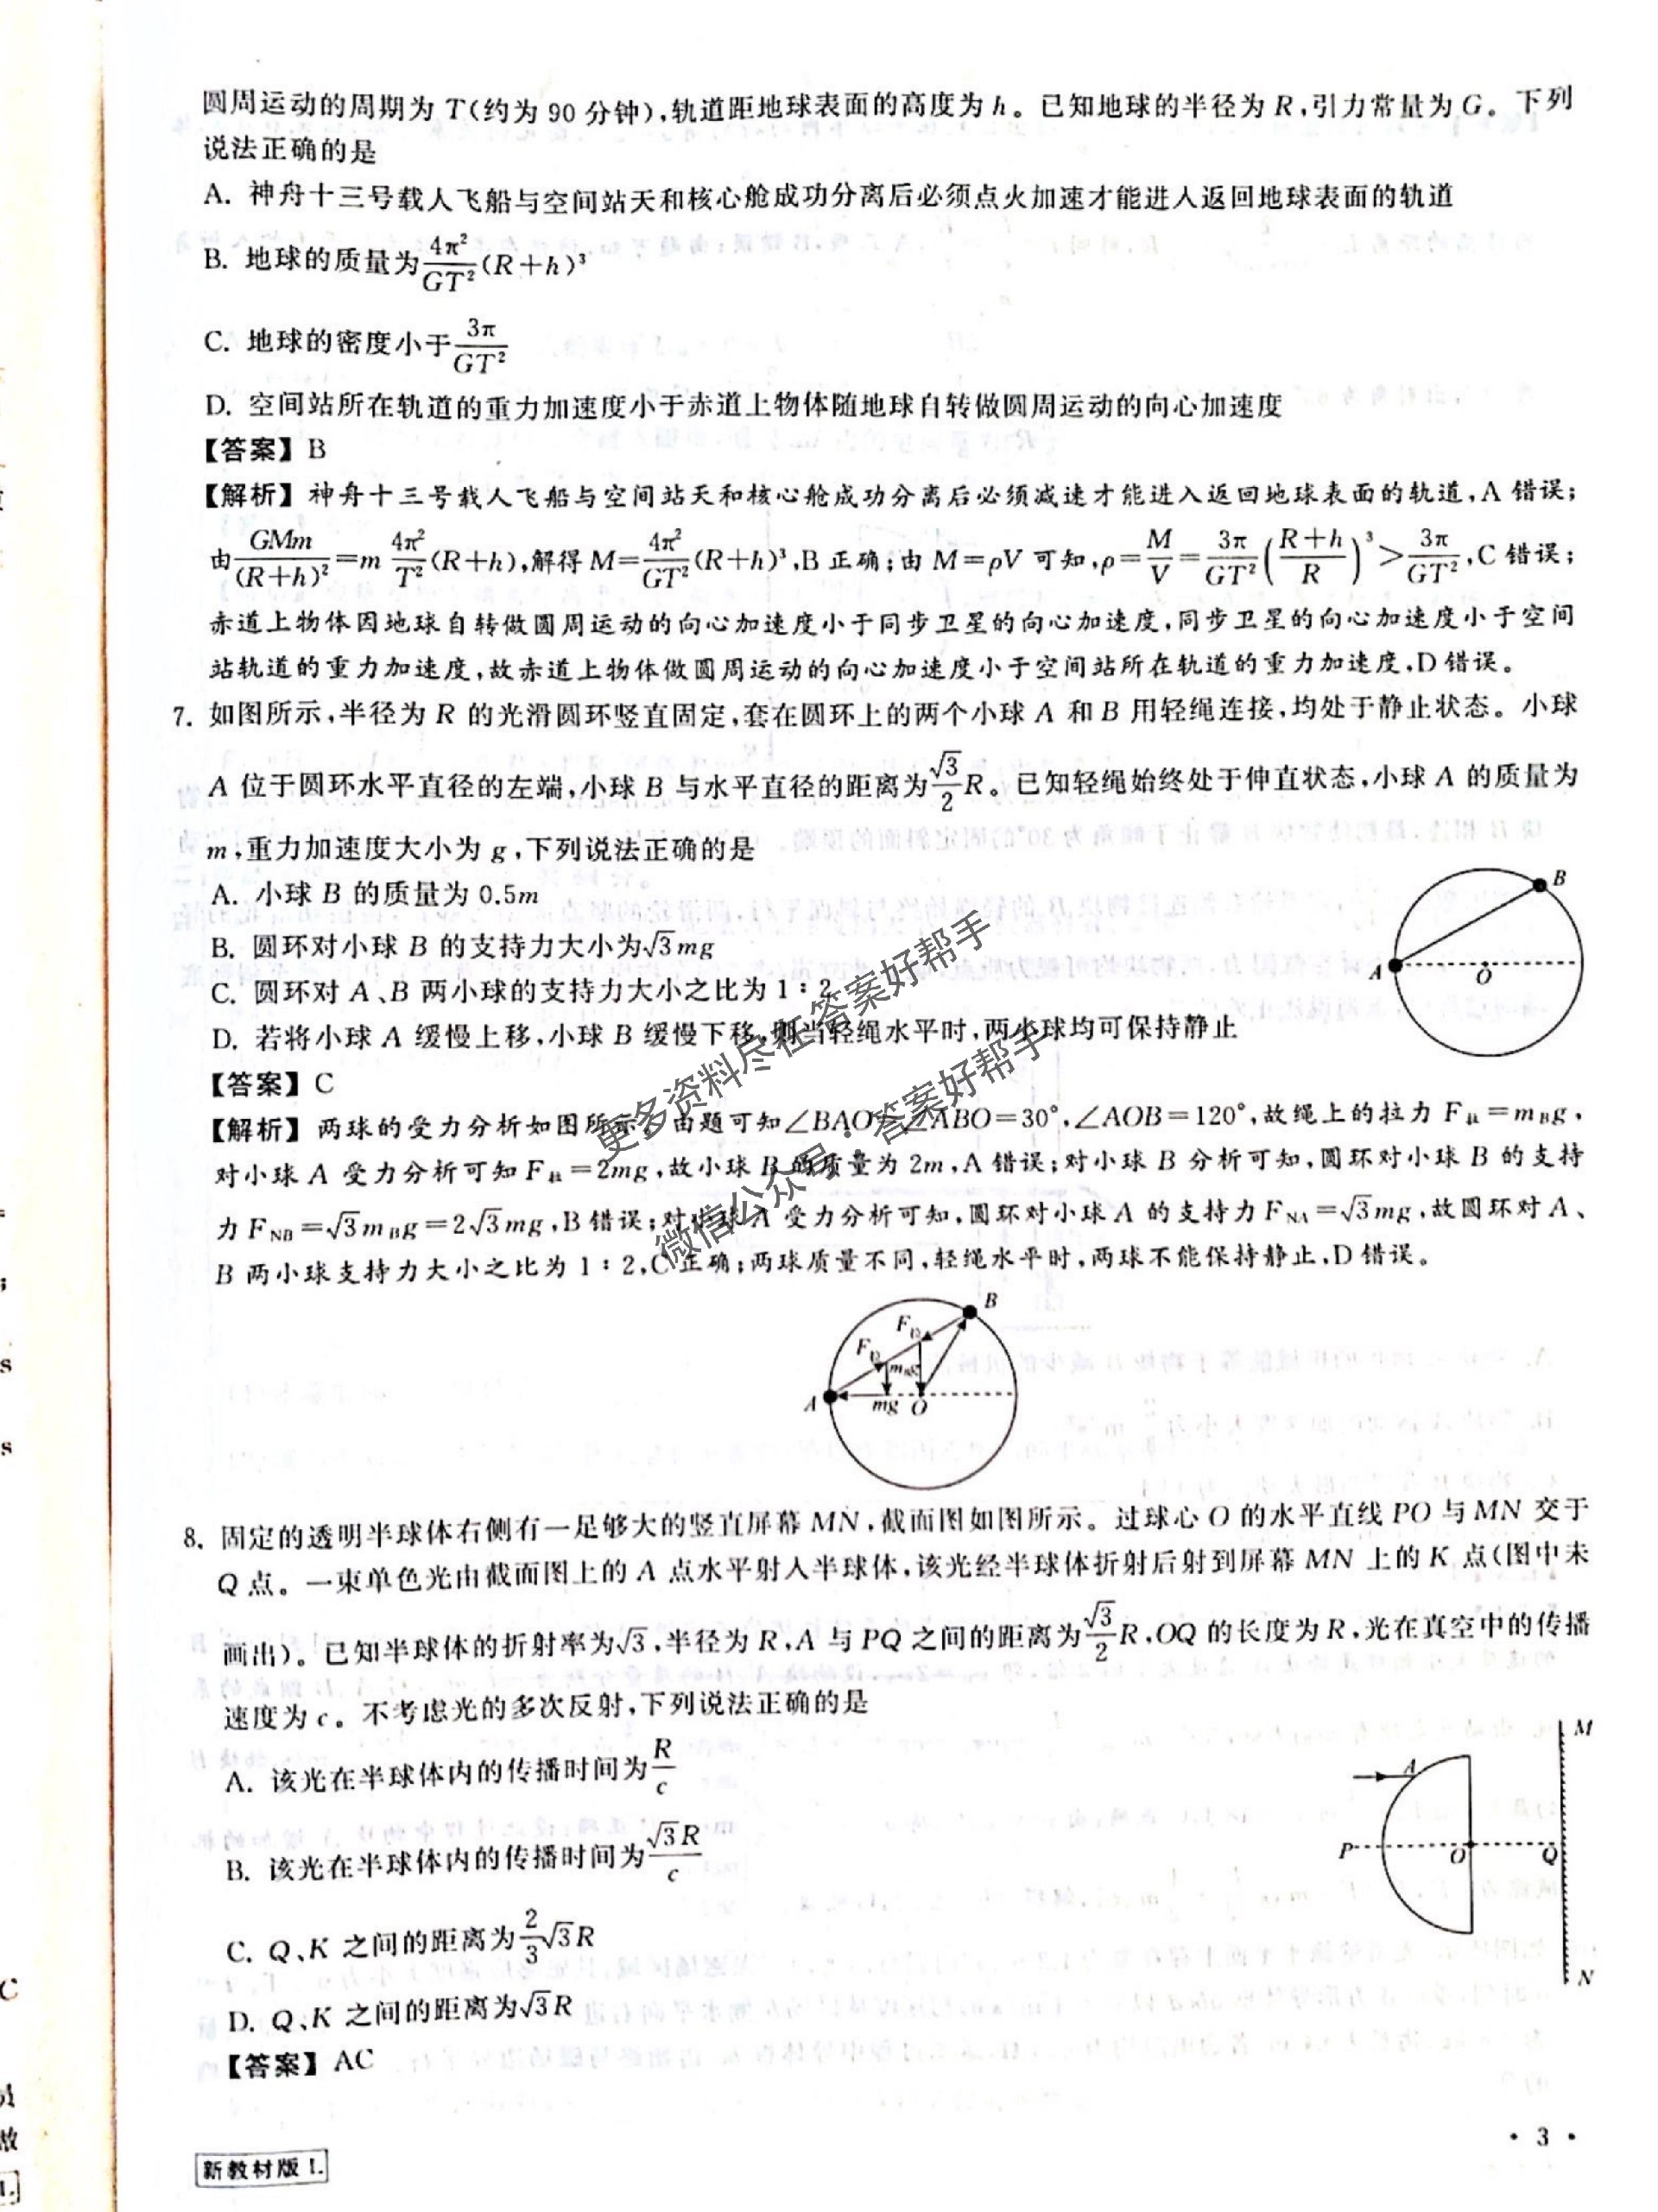 圆周运动的周期为 T(约为 90 分钟),轨道距地球表面的高度为 h。已知地球的半径为 R,引力常量为 G。下列
说法正确的是
A. 神舟十三号载人飞船与空间站天和核心舱成功分离后必须点火加速才能进入返回地球表面的轨道
B. 地球的质量为\frac{4π²}{GT²}(R+h)³
C. 地球的密度小于\frac{3π}{GT²}
D. 空间站所在轨道的重力加速度小于赤道上物体随地球自转做圆周运动的向心加速度
【答案】B
【解析】神舟十三号载人飞船与空间站天和核心舱成功分离后必须减速才能进入返回地球表面的轨道,A 错误;
由\frac{GMm}{(R+h)²}=m\frac{4π²}{T²}(R+h),解得 M=\frac{4π²}{GT²}(R+h)³,B 正确;由 M=ρV 可知,ρ=\frac{M}{V}=\frac{3π}{GT²}(\frac{R+h}{R})³>\frac{3π}{GT²},C 错误;
赤道上物体因地球自转做圆周运动的向心加速度小于同步卫星的向心加速度,同步卫星的向心加速度小于空间
站轨道的重力加速度,故赤道上物体做圆周运动的向心加速度小于空间站所在轨道的重力加速度,D 错误。
7. 如图所示,半径为 R 的光滑圆环竖直固定,套在圆环上的两个小球 A 和 B 用轻绳连接,均处于静止状态。小球
A 位于圆环水平直径的左端,小球 B 与水平直径的距离为\frac{√3}{2}R。已知轻绳始终处于伸直状态,小球 A 的质量为
m,重力加速度大小为 g,下列说法正确的是
A. 小球 B 的质量为 0.5m
B. 圆环对小球 B 的支持力大小为√3mg
C. 圆环对 A、B 两小球的支持力大小之比为 1∶2
D. 若将小球 A 缓慢上移,小球 B 缓慢下移,则当轻绳水平时,两小球均可保持静止
B
A
O
【答案】C
【解析】两球的受力分析如图所示,由题可知∠BAO=∠ABO=30°,∠AOB=120°,故绳上的拉力 F拉=mBg,
对小球 A 受力分析可知 F拉=2mg,故小球 B 的质量为 2m,A 错误;对小球 B 分析可知,圆环对小球 B 的支持
力 FNB=√3mBg=2√3mg,B 错误;对小球 A 受力分析可知,圆环对小球 A 的支持力 FNA=√3mg,故圆环对 A、
B 两小球支持力大小之比为 1∶2,C 正确;两球质量不同,轻绳水平时,两球不能保持静止,D 错误。
更多资料尽在答案好帮手
微信公众号:答案好帮手
B
F拉
F拉
mBg
A
mg
O
8. 固定的透明半球体右侧有一足够大的竖直屏幕 MN,截面图如图所示。过球心 O 的水平直线 PO 与 MN 交于
Q 点。一束单色光由截面图上的 A 点水平射入半球体,该光经半球体折射后射到屏幕 MN 上的 K 点(图中未
画出)。已知半球体的折射率为√3,半径为 R,A 与 PQ 之间的距离为\frac{√3}{2}R,OQ 的长度为 R,光在真空中的传播
速度为 c。不考虑光的多次反射,下列说法正确的是
A. 该光在半球体内的传播时间为\frac{R}{c}
B. 该光在半球体内的传播时间为\frac{√3R}{c}
C. Q、K 之间的距离为\frac{2}{3}√3R
D. Q、K 之间的距离为√3R
M
A
P
O
Q
N
【答案】AC
新教材版 L
· 3 ·